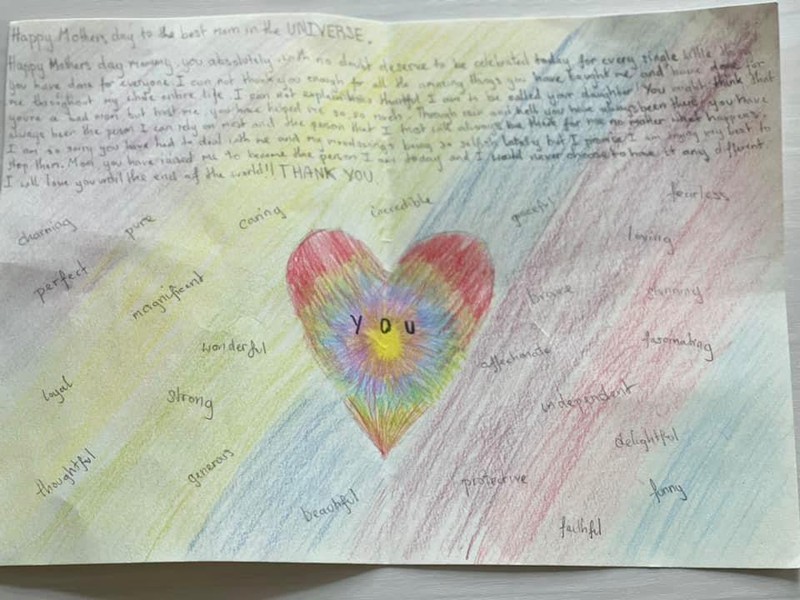 Happy Mothers day to the best mom in the UNIVERSE.
Happy Mothers day mommy, you absolutely with no doubt deserve to be celebrated today for every single little thing
you have done for everyone I can not thank you enough for all the amazing things you have taught me and have done for
me throughout my whole entire life I can not explain how thankful I am to be called your daughter. You might think that
you're a bad mom but trust me you have helped me so, so much. Through rain and hell you have always been there, you have
always been the person I can rely on most and the person that I trust will always be there for me no matter what happens.
I am so sorry you have had to deal with me and my mood swings being so selfish lately but I promise I am trying my best to
stop them. Mom you have raised me to become the person I am today and I would never choose to have it any different.
I will love you until the end of the world!! THANK YOU
charming pure caring incredible graceful fearless
loving
perfect magnificent brave stunning
you
wonderful affectionate fascinating
loyal strong independent
delightful
thoughtful generous protective funny
beautiful faithful